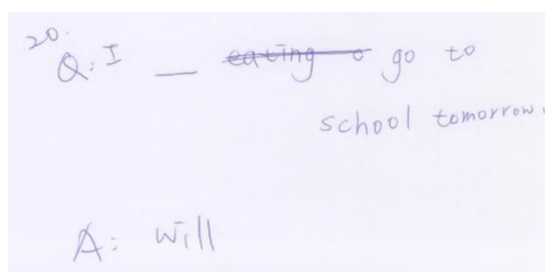 20.
Q: I _ eating o go to
school tomorrow.
A: Will